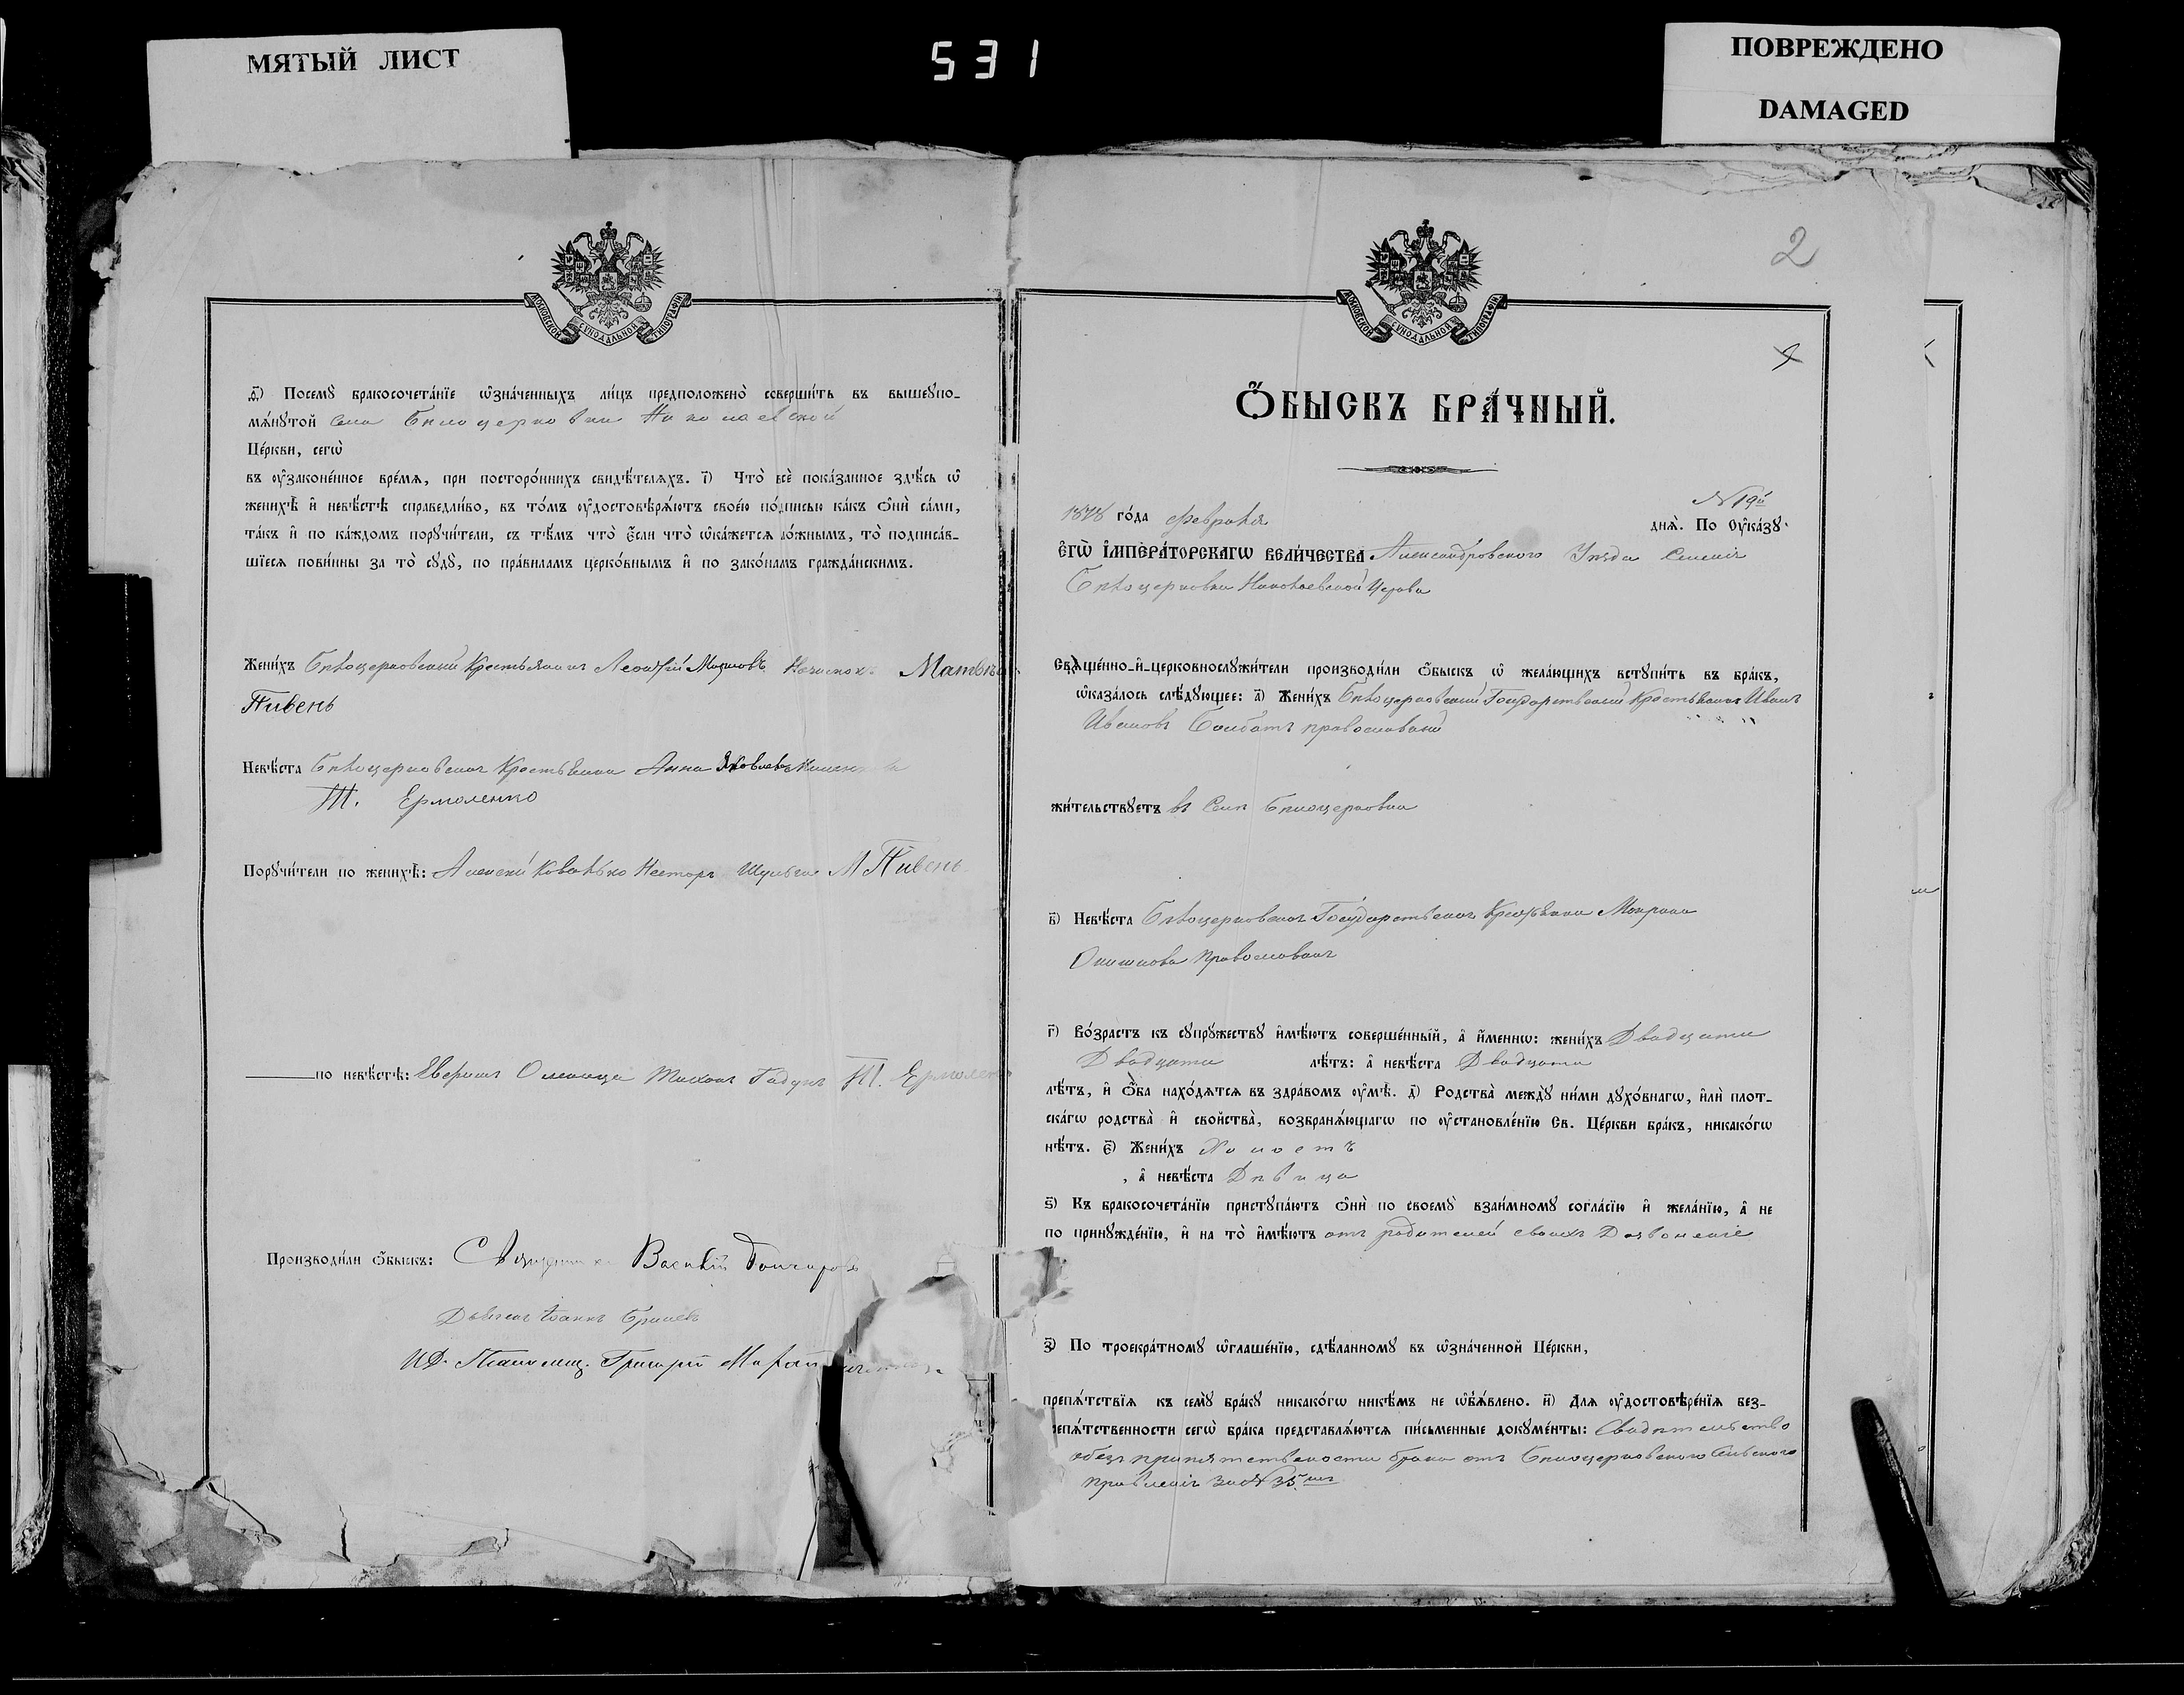 МЯТЫЙ ЛИСТ
531
ПОВРЕЖДЕНО
DAMAGED
МОСКОВСКОЙ СѴНОДАЛЬНОЙ ТИПОГРАФІИ
д҃) Посемꙋ̀ бракосочета́нїе ѡ҆зна́ченныхъ ли́цъ предположено̀ соверши́ть въ вышеꙋпо-
мѧ́нꙋтой села Бѣлоцерковки Николаевской
Це́ркви, сегѡ̀
въ оу҆законе́нное вре́мѧ, при посторо́ннихъ свидѣ́телѧхъ. і҃) Что̀ всѐ пока́занное здѣ́сь ѡ҆
женихѣ̀ и҆ невѣ́стѣ справедли́во, въ то́мъ оу҆достовѣрѧ́ютъ свое́ю по́дписью ка́къ ѻ҆нѝ са́ми,
та́къ и҆ по ка́ждомъ порꙋчи́тели, съ тѣ́мъ что̀ є҆́сли что̀ ѡ҆ка́жетсѧ ло́жнымъ, то̀ подписа́в-
шїесѧ пови́нны за то̀ сꙋдꙋ̀, по пра́виламъ церко́внымъ и҆ по зако́намъ гражда́нскимъ.
Жени́хъ Бѣлоцерковский Крестьянинъ Матвѣй
Пивень
Невѣ́ста Бѣлоцерковская Крестьянка Анна Яковлева
Т. Ермоленко
Порꙋчи́тели по женихѣ̀: Алексей Ковалько Несторъ Шульга М Пивень
по невѣ́стѣ: Аверкий Олейница Тихонъ Гадунъ Т. Ермоленко
Производи́ли ѻ҆́быскъ: Священникъ Василій Гончаровъ
Дьячокъ Іоаннъ
ИД. Псаломщ. Григорій
2
Ѻ҆́БЫСКЪ БРА́ЧНЫЙ.
N 19й
1878 го́да февраля днѧ̀. По Оу҆ка́зꙋ
Є҆ГѠ̀ И҆МПЕРА́ТОРСКАГѠ ВЕЛИ́ЧЕСТВА Александровского Уѣзда Селенія
Бѣлоцерковки Николаевской Церкви
Свѧще́нно-и҆-церковнослꙋжи́тели производи́ли ѻ҆́быскъ ѡ҆ жела́ющихъ встꙋпи́ть въ бра́къ,
ѡ҆каза́лось слѣ́дꙋющее: а҃) Жени́хъ Бѣлоцерковский Государственый Крестьянинъ Иванъ
Ивановъ православный
жи́тельствꙋетъ въ Селѣ Бѣлоцерковки
в҃) Невѣ́ста Бѣлоцерковская Государственая Крестьянка
православная
г҃) Во́зрастъ къ сꙋпрꙋ́жествꙋ и҆мѣ́ютъ соверше́нный, а҆ и҆́менно: жени́хъ Двадцати
Двадцати лѣ́тъ: а҆ невѣ́ста Двадцати
лѣ́тъ, и҆ ѻ҆́ба нахо́дѧтсѧ въ здра́вомъ оу҆мѣ̀. д҃) Родства̀ междꙋ̀ ни́ми дꙋхо́внагѡ, и҆лѝ плот-
ска́гѡ родства̀ и҆ сво́йства̀, возбранѧ́ющагѡ по оу҆становле́нїю Св. Це́ркви бра́къ, никако́гѡ
нѣ́тъ. є҃) Жени́хъ Холостъ
, а҆ невѣ́ста Дѣвица
ѕ҃) Къ бракосочета́нїю пристꙋпа́ютъ ѻ҆нѝ по своемꙋ̀ взаи́мномꙋ согла́сїю и҆ жела́нїю, а҆ не
по принꙋжде́нїю, и҆ на то̀ и҆мѣ́ютъ отъ родителей своихъ Дозволеніе
з҃) По троекра́тномꙋ ѡ҆глаше́нїю, сдѣ́ланномꙋ въ ѡ҆зна́ченной Це́ркви,
препѧ́тствїѧ къ семꙋ̀ бра́кꙋ никако́гѡ никѣ́мъ не ѡ҆б̾ѧ́влено. и҃) Для оу҆достовѣре́нїѧ без-
репѧ́тственности сегѡ̀ бра́ка представлѧ́ютсѧ пи́сьменные докꙋме́нты: Свидѣтельство
обезъ припятствености брака отъ Бѣлоцерковского Сельского
Правленія за N 35